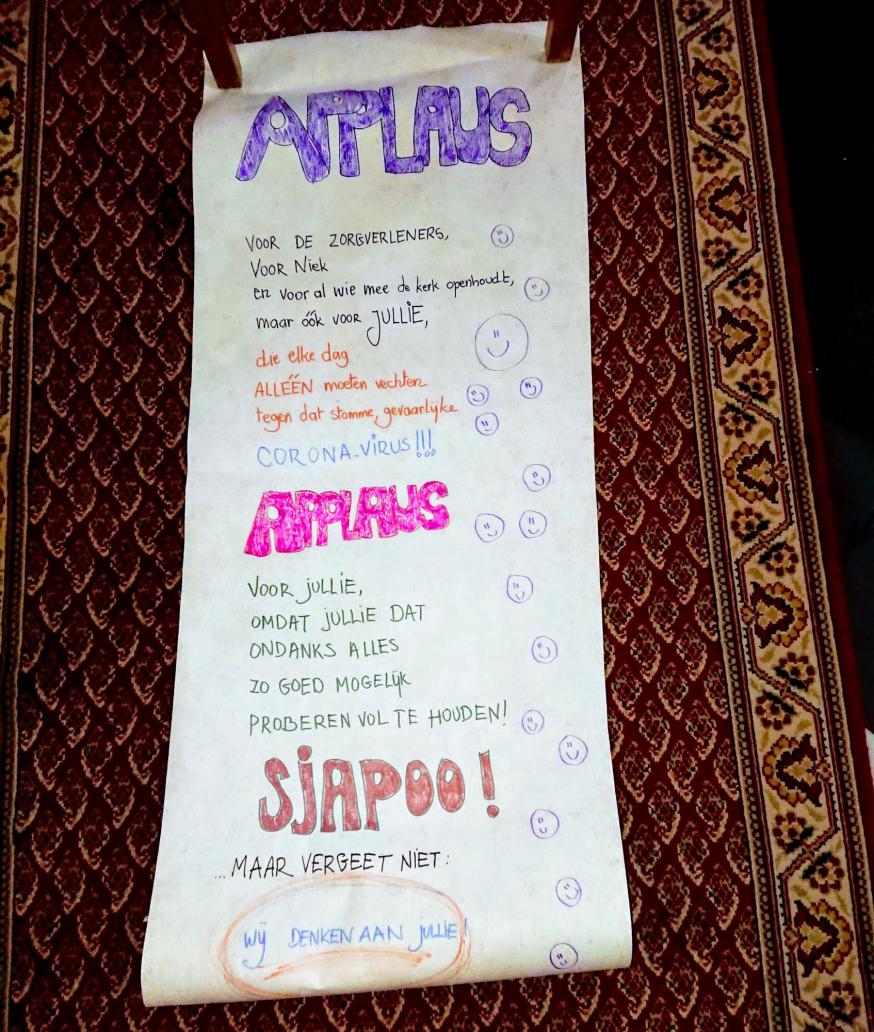 APPLAUS
VOOR DE ZORGVERLENERS,
VOOR Niek
en voor al wie mee de kerk openhoudt,
maar óók voor JULLIE,
die elke dag
ALLÉÉN moeten vechten
tegen dat stomme, gevaarlijke
CORONA-VIRUS!!!
APPLAUS
VOOR JULLIE,
OMDAT JULLIE DAT
ONDANKS ALLES
ZO GOED MOGELIJK
PROBEREN VOL TE HOUDEN!
SJAPOO!
...MAAR VERGEET NIET:
WIJ DENKEN AAN JULLIE!